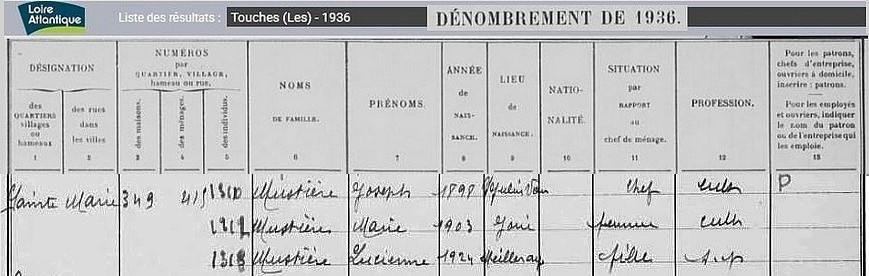 Loire
Atlantique
Liste des résultats : Touches (Les) - 1936
DÉNOMBREMENT DE 1936.
DÉSIGNATION
des QUARTIERS villages ou hameaux
des rues dans les villes
NUMÉROS
par QUARTIER, VILLAGE, hameau ou rue.
des maisons.
des ménages.
des individus.
NOMS
DE FAMILLE.
PRÉNOMS.
ANNÉE
de
NAISSANCE.
LIEU
de
NAISSANCE.
NATIONALITÉ.
SITUATION
par
RAPPORT
au
chef de ménage.
PROFESSION.
Pour les patrons, chefs d'entreprise, ouvriers à domicile, inscrire : patrons.
Pour les employés et ouvriers, indiquer le nom du patron ou de l'entreprise qui les emploie.
1 2 3 4 5 6 7 8 9 10 11 12 13
Sainte Marie 349 415 1310 Mustière Joseph 1898 chef cult P
Mustière Marie 1903 Joué femme cult
Mustière Lucienne 1924 Meilleray fille s.p